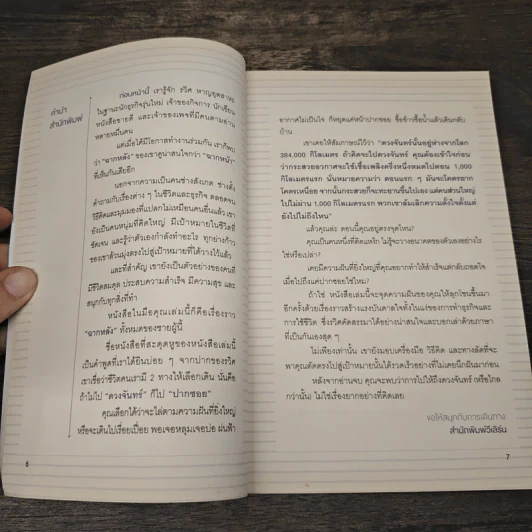 คำนำ
สำนักพิมพ์
ก่อนหน้านี้ เรารู้จัก รวิศ หาญอุตสาหะ
ในฐานะนักธุรกิจรุ่นใหม่ เจ้าของกิจการ นักเขียน
หนังสือขายดี และเจ้าของเพจที่มีคนตามอ่าน
หลายหมื่นคน
แต่เมื่อได้มีโอกาสทำงานร่วมกัน เราก็พบ
ว่า "ฉากหลัง" ของเขาดูน่าสนใจกว่า "ฉากหน้า"
ที่เห็นกันเสียอีก
นอกจากความเป็นคนช่างสังเกต ช่างตั้ง
คำถามกับเรื่องต่าง ๆ ในชีวิตและธุรกิจ ตลอดจน
วิธีคิดและมุมมองที่แปลกไม่เหมือนคนอื่นแล้ว เขา
ยังเป็นคนหนุ่มที่คิดใหญ่ มีเป้าหมายในชีวิตที่
ชัดเจน และรู้ว่าตัวเองกำลังทำอะไร ทุกย่างก้าว
ของเขาล้วนมุ่งตรงไปสู่เป้าหมายที่ได้วางไว้แล้ว
และที่สำคัญ เขายังเป็นตัวอย่างของคนที่
มีชีวิตสมดุล ประสบความสำเร็จ มีความสุข และ
สนุกกับทุกสิ่งที่ทำ
หนังสือในมือคุณเล่มนี้ก็คือเรื่องราว
"ฉากหลัง" ทั้งหมดของชายผู้นี้
ชื่อหนังสือที่สะดุดหูของหนังสือเล่มนี้
เป็นคำพูดที่เราได้ยินบ่อย ๆ จากปากของรวิศ
เขาเชื่อว่าชีวิตคนเรามี 2 ทางให้เลือกเดิน นั่นคือ
ถ้าไม่ไป "ดวงจันทร์" ก็ไป "ปากซอย"
คุณเลือกได้ว่าจะไล่ตามความฝันที่ยิ่งใหญ่
หรือจะเดินไปเรื่อยเปื่อย พอเจอหลุมเจอบ่อ ฝนฟ้า
6
อากาศไม่เป็นใจ ก็หยุดแค่หน้าปากซอย ซื้อข้าวซื้อน้ำแล้วเดินกลับ
บ้าน
เขาเคยให้สัมภาษณ์ไว้ว่า "ดวงจันทร์นั้นอยู่ห่างจากโลก
384,000 กิโลเมตร ถ้าคิดจะไปดวงจันทร์ คุณต้องเข้าใจก่อน
ว่ากระสวยอวกาศจะใช้เชื้อเพลิงครึ่งหนึ่งหมดไปตอน 1,000
กิโลเมตรแรก นั่นหมายความว่า ตอนแรก ๆ มันจะโคตรยาก
โคตรเหนื่อย จากนั้นกระสวยก็จะทะยานขึ้นไปเอง แต่คนส่วนใหญ่
ไปไม่ผ่าน 1,000 กิโลเมตรแรก พวกเขาล้มเลิกความตั้งใจตั้งแต่
ยังไปไม่ถึงไหน"
แล้วคุณล่ะ ตอนนี้คุณอยู่ตรงจุดไหน?
คุณเป็นคนหนึ่งที่คิดแหง็ก ไม่รู้จะวาดอนาคตของตัวเองอย่างไร
ใช่หรือเปล่า?
เคยมีความฝันที่ยิ่งใหญ่ที่คุณอยากทำให้สำเร็จแต่กลับถอดใจ
เมื่อไปถึงแค่ปากซอยไหม?
ถ้าใช่ หนังสือเล่มนี้จะจุดความฝันของคุณให้ลุกโชนขึ้นมา
อีกครั้งด้วยเรื่องราวสร้างแรงบันดาลใจทั้งในแง่ของการทำธุรกิจและ
การใช้ชีวิต ซึ่งรวิศคัดสรรมาได้อย่างน่าสนใจและบอกเล่าด้วยภาษา
ที่เป็นกันเองสุด ๆ
ไม่เพียงเท่านั้น เขายังมอบเครื่องมือ วิธีคิด และทางลัดที่จะ
พาคุณดัดตรงไปสู่เป้าหมายนั้นได้รวดเร็วอย่างที่ไม่เคยนึกฝันมาก่อน
หลังจากอ่านจบ คุณจะพบว่าการไปให้ถึงดวงจันทร์ หรือไกล
กว่านั้น! ไม่ใช่เรื่องยากอย่างที่คิดเลย
ขอให้สนุกกับการเดินทาง
สำนักพิมพ์วีเลิร์น
7